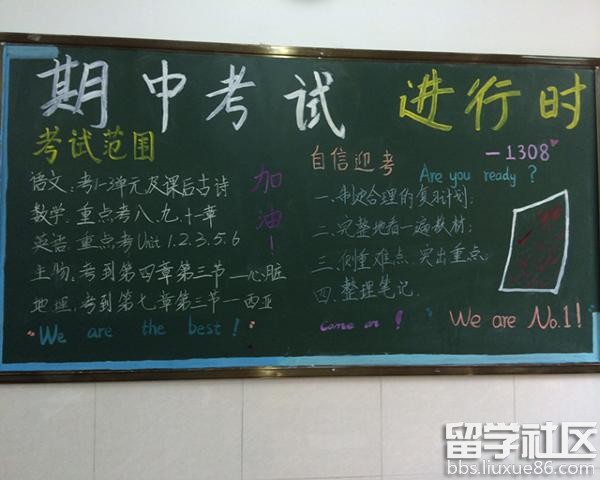 期中考试 进行时
考试范围
语文:考1-3单元及课后古诗
数学:重点考八、九、十章
英语:重点考Unit 1.2.3.5.6
生物:考到第四章第三节—心脏
地理:考到第七章第三节—西亚
"We are the best!"
加油!
自信迎考
—1308
Are you ready?
一.制定合理的复习计划;
二.完整地看一遍教材;
三.侧重难点,突出重点
四.整理笔记.
Come on!
"We are No.1!"
留学社区
bbs.liuxue86.com